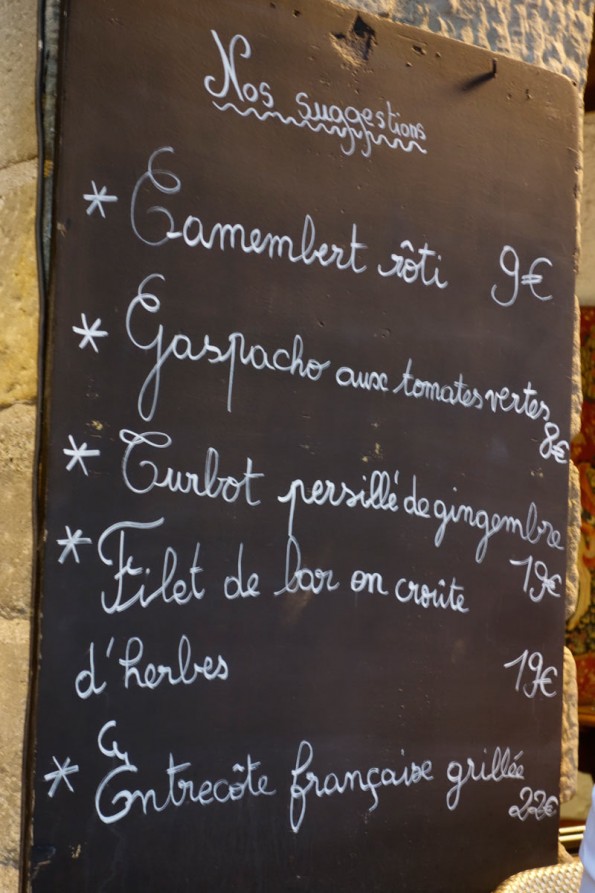 Nos suggestions
* Camembert rôti 9€
* Gaspacho aux tomates vertes
8€
* Turbot persillé de gingembre
19€
* Filet de bar en croûte
d'herbes 19€
* Entrecôte française grillée
22€